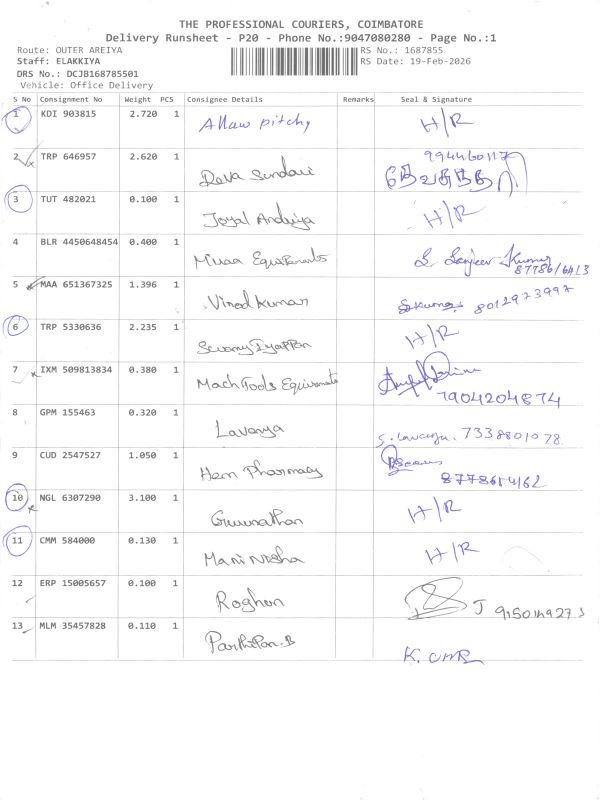 THE PROFESSIONAL COURIERS, COIMBATORE
Delivery Runsheet - P20 - Phone No.:9047080280 - Page No.:1
Route: OUTER AREIYA RS No.: 1687855
Staff: ELAKKIYA RS Date: 19-Feb-2026
DRS No.: DCJB168785501
Vehicle: Office Delivery
S No Consignment No Weight PCS Consignee Details Remarks Seal & Signature
1 KDI 903815 2.720 1 H/R
2 TRP 646957 2.620 1 Deva Sundari
3 TUT 482021 0.100 1 Joyal H/R
4 BLR 4450648454 0.400 1
5 MAA 651367325 1.396 1 Vinod Kumar 8012973997
6 TRP 5330636 2.235 1 H/R
7 IXM 509813834 0.380 1 Mach Tools 7904204874
8 GPM 155463 0.320 1 Lavanya 7338801078
9 CUD 2547527 1.050 1 Hem Pharmacy
10 NGL 6307290 3.100 1 Gurunathan H/R
11 CMM 584000 0.130 1 Mani Nisha H/R
12 ERP 15005657 0.100 1 Roghan
13 MLM 35457828 0.110 1 Parthipan.B